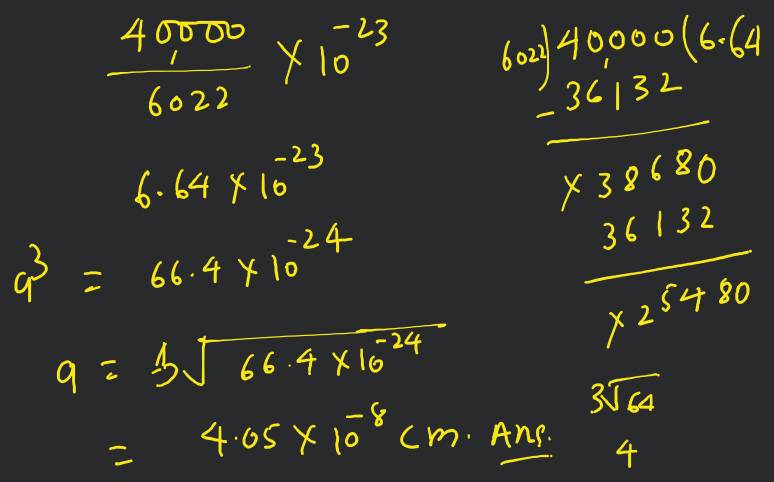 40,000
6022
× 10^-23
6.64 × 10^-23
a^3 = 66.4 × 10^-24
a = ∛66.4 × 10^-24
= 4.05 × 10^-8 cm. Ans.
6022)40,000(6.64
-36132
×38680
36132
×25480
3√64
4